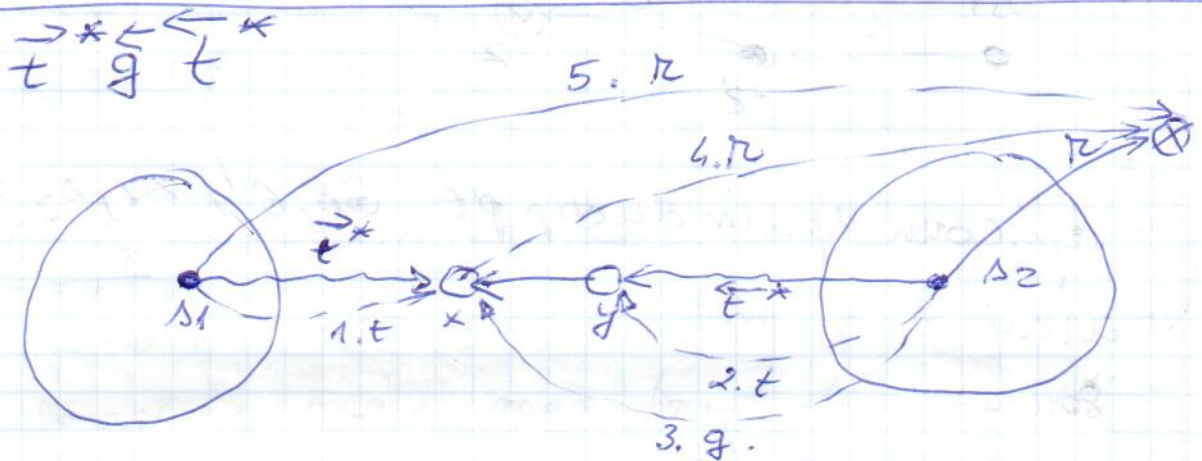 t* g t*
5. r
4. r r
t*
s1 1. t x y t* s2
2. t
3. g.